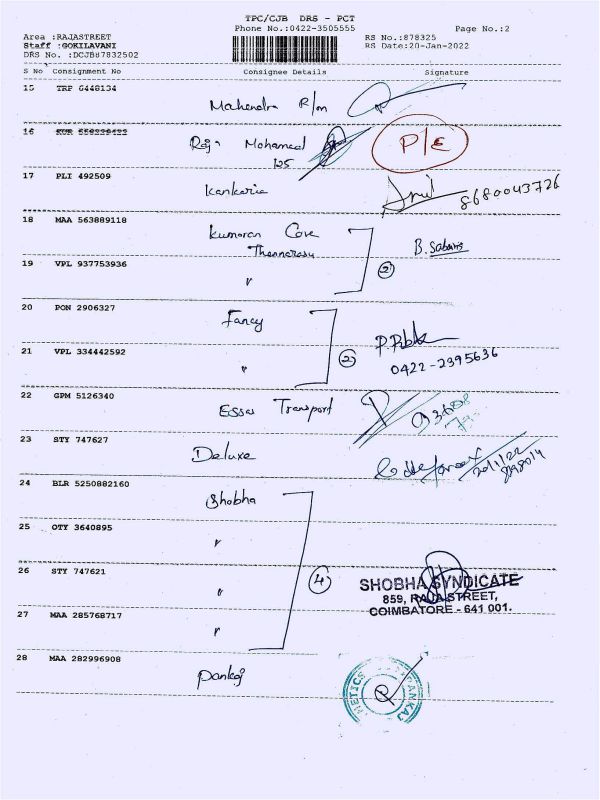 TPC/CJB DRS - PCT
Phone No.:0422-3505555
Page No.:2
Area :RAJASTREET
Staff :GOKILAVANI
DRS No.:DCJB#7832502
RS No.:878325
RS Date:20-Jan-2022
S No Consignment No Consignee Details Signature
15 TRP 6448134 Mahendra R/m
16 Raja Mohamed P/E
125
17 PLI 492509 Kankaria 8680043726
18 MAA 563889118 Kumaran Cove B. Sabari
Thennarasu
19 VPL 937753936 " 2
20 PON 2906327 Fancy
21 VPL 334442592 " 2 0422-2395636
22 GPM 5126340 Essar Transport
23 STY 747627 Deluxe
24 BLR 5250882160 Shobha
25 OTY 3640895 "
26 STY 747621 " 4 SHOBHA SYNDICATE
859, RAJA STREET,
COIMBATORE - 641 001.
27 MAA 285768717 "
28 MAA 282996908 Pankaj
PANKAJ